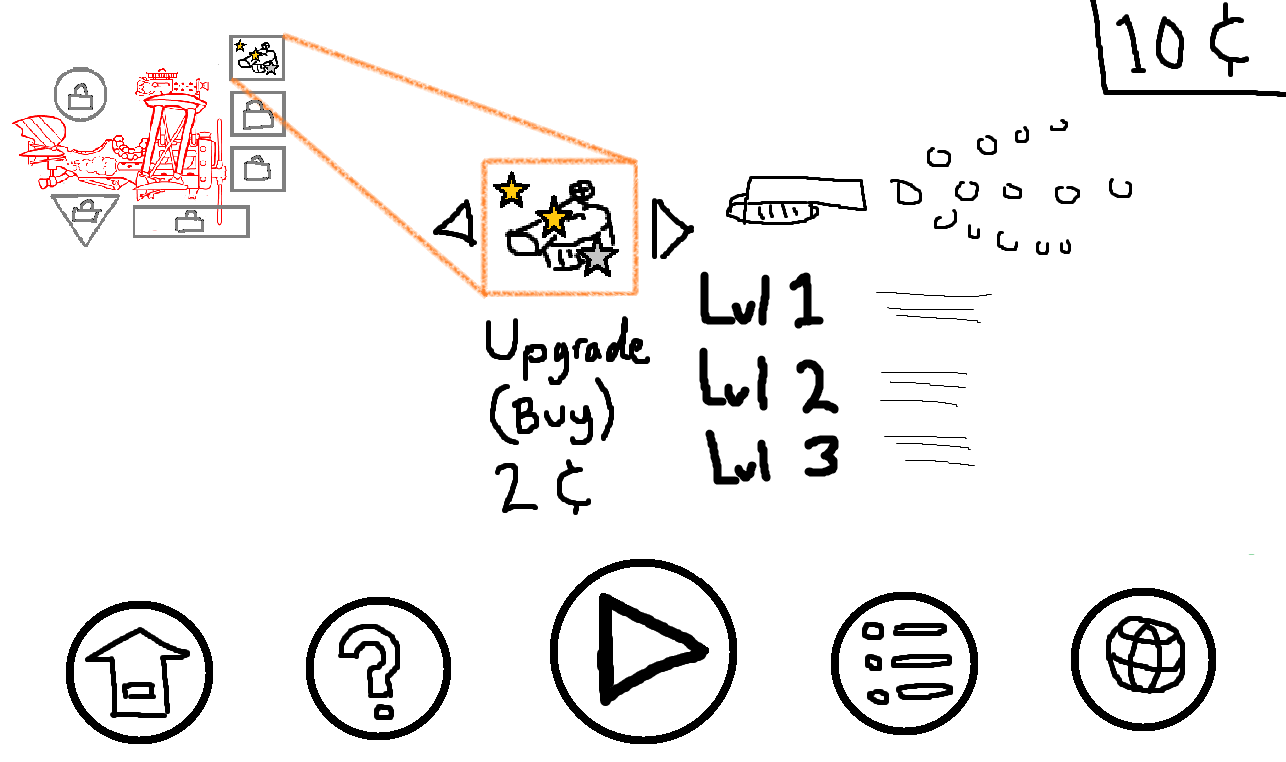 10 ¢
Upgrade
(Buy)
2 ¢
Lvl 1
Lvl 2
Lvl 3
?